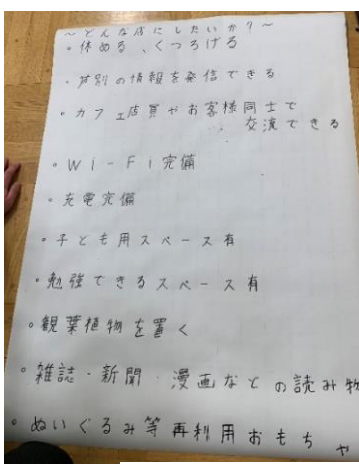 ～どんな店にしたいか？～
・休める、くつろげる
・芦別の情報を発信できる
・カフェ店員やお客様同士で
交流できる
・Wi-Fi完備
・充電完備
・子ども用スペース有
・勉強できるスペース有
・観葉植物を置く
・雑誌・新聞・漫画などの読み物
・ぬいぐるみ等再利用おもちゃ